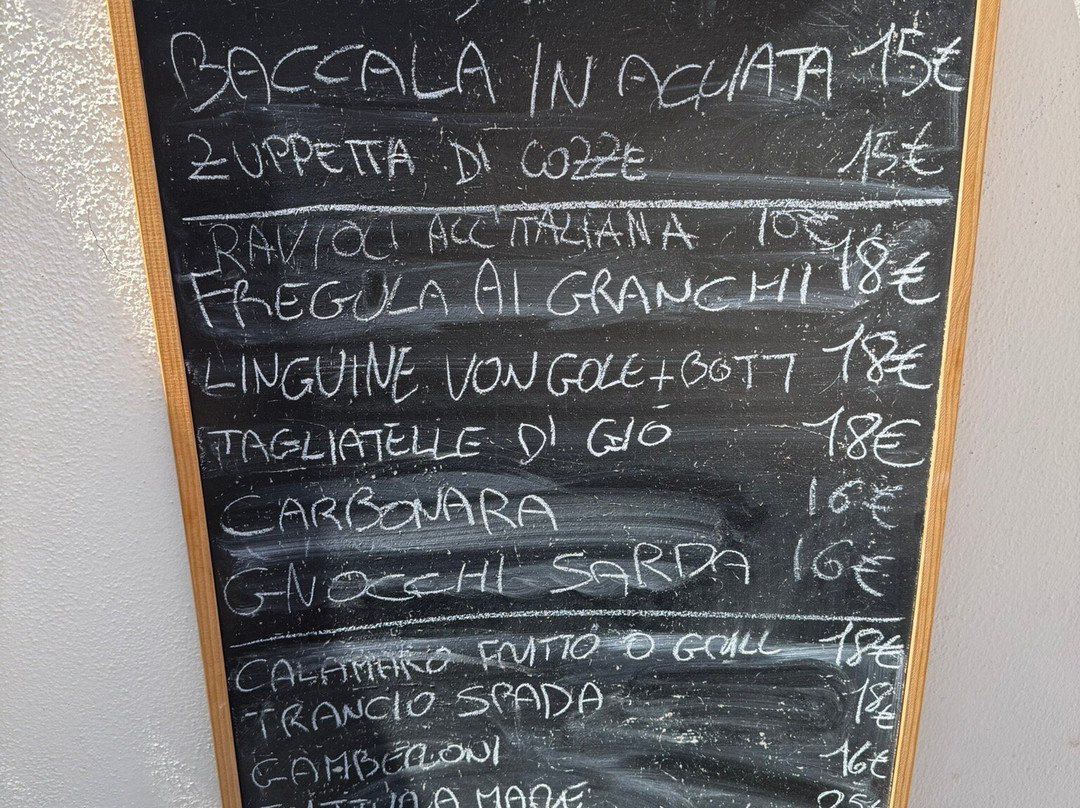 BACCALA IN AGLIATA 15€
ZUPPETTA DI COZZE 15€
RAVIOLI ALL'ITALIANA 16€
FREGULA AI GRANCHI 18€
LINGUINE VONGOLE+BOTT 18€
TAGLIATELLE DI GIÓ 18€
CARBONARA 16€
GNOCCHI SARDA 16€
CALAMARO FRITTO O GRILL 18€
TRANCIO SPADA 18€
GAMBERONI 16€
MARE